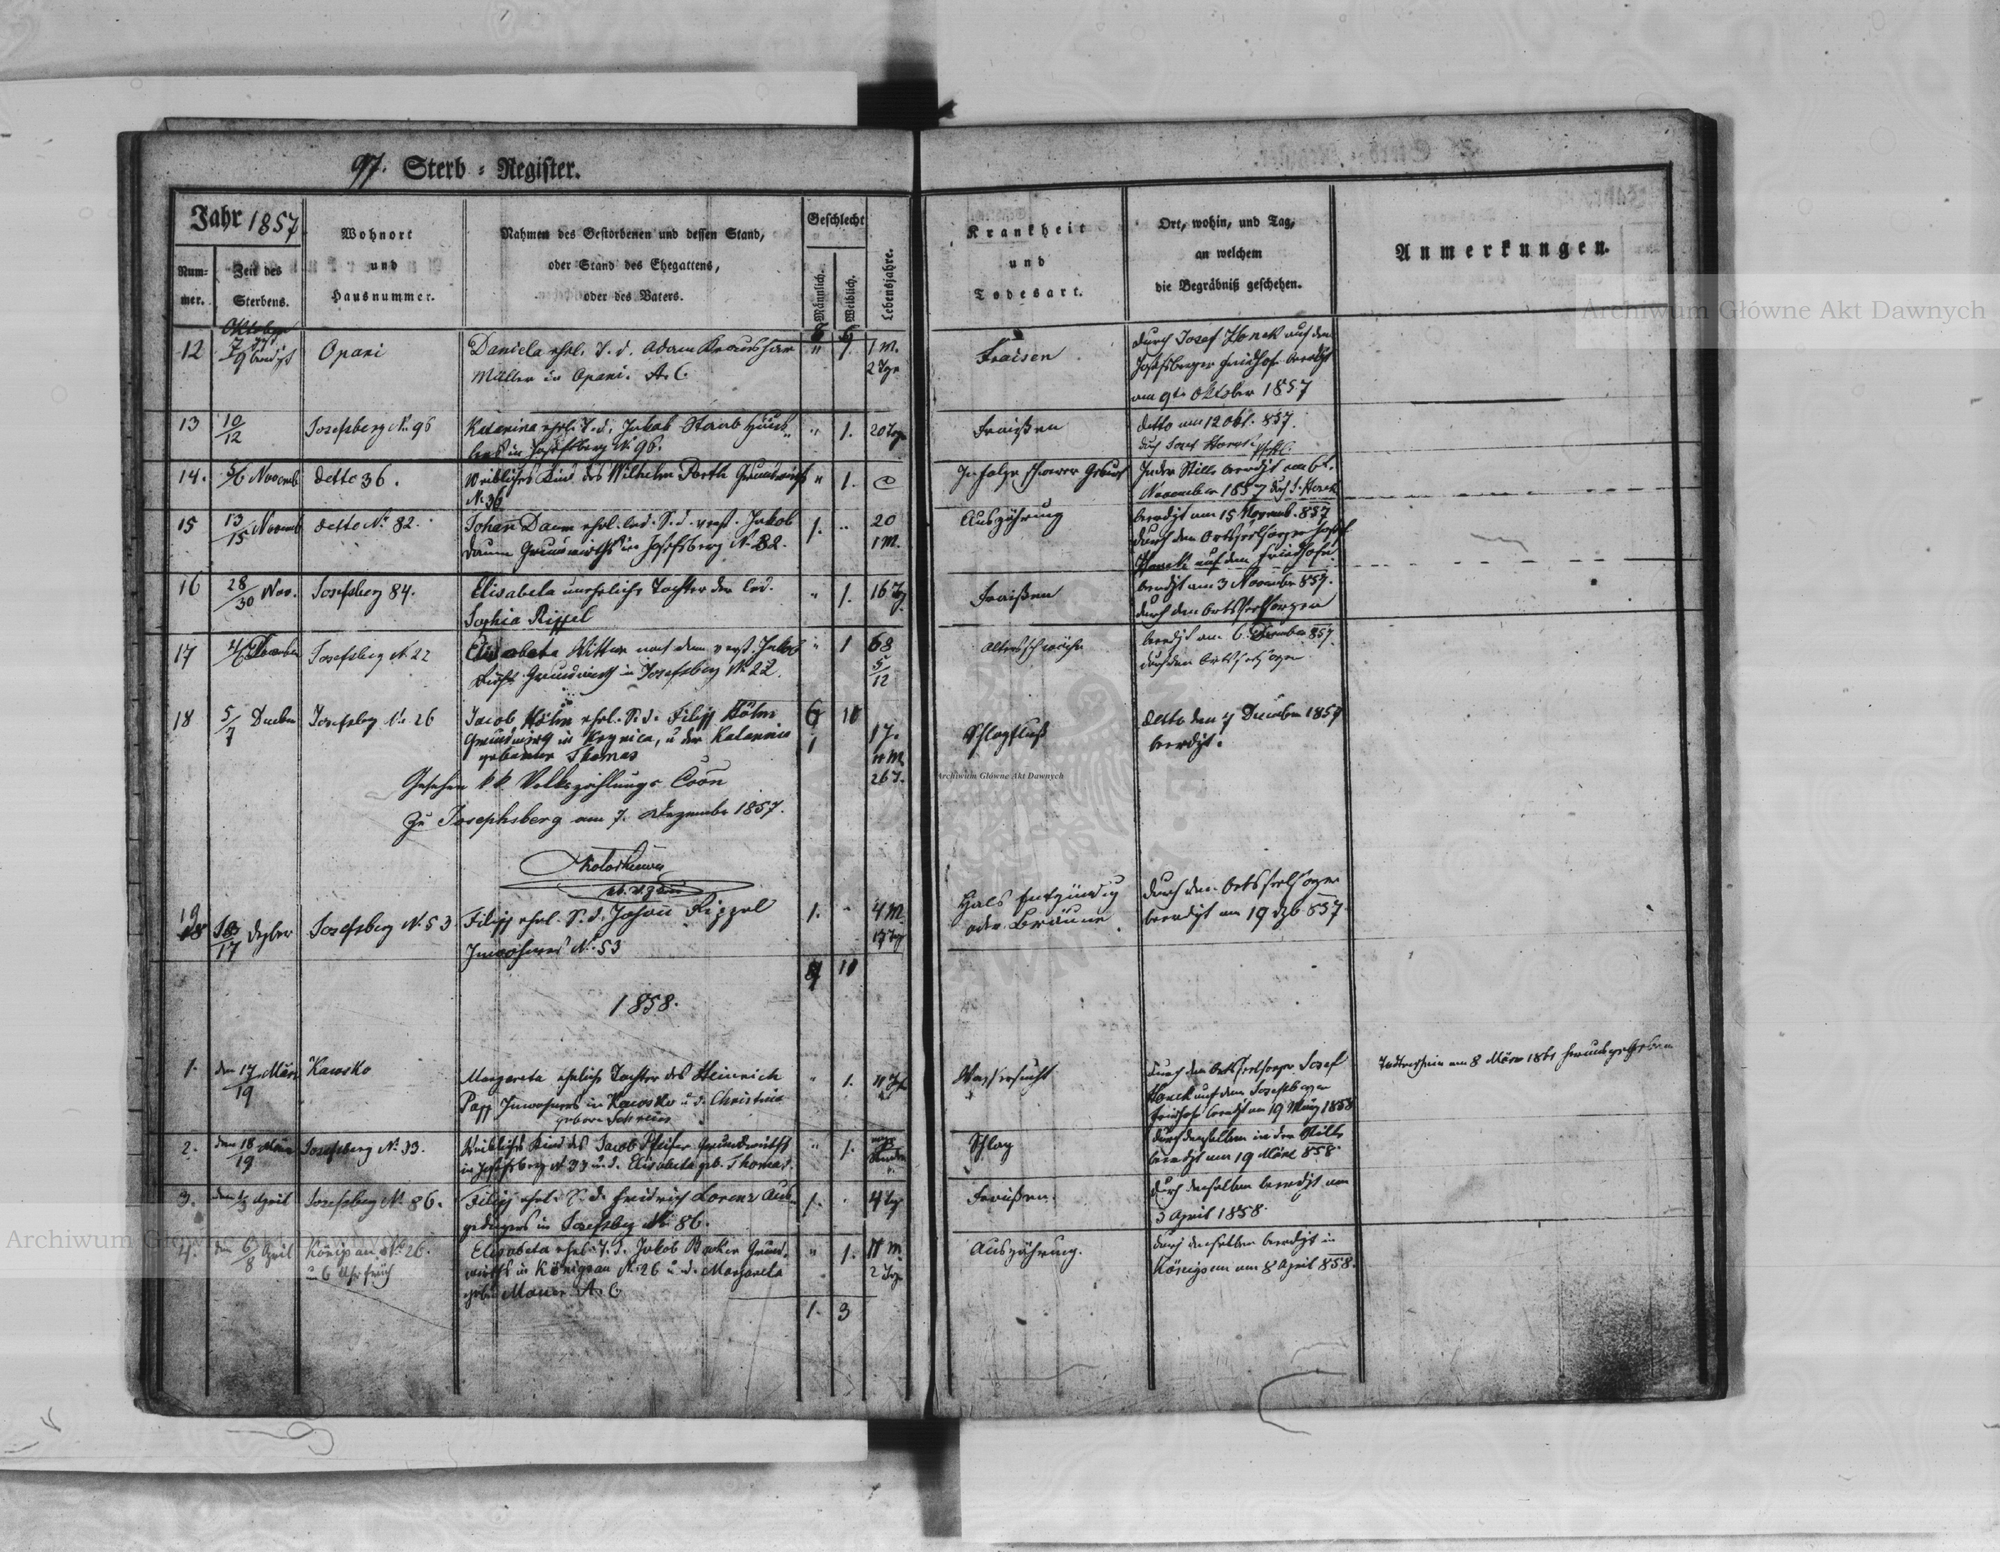 97. Sterb-Register.
Jahr 1857
Wohnort
und
Hausnummer.
Nahmen des Gestorbenen und dessen Stand,
oder Stand des Ehegattens,
oder des Vaters.
Geschlecht
Männlich.
Weiblich.
Lebensjahre.
Num-
mer.
Zeit des
Sterbens.
Krankheit
und
Todesart.
Ort, wohin, und Tag,
an welchem
die Begräbniß geschehen.
Anmerkungen.
Archiwum Główne Akt Dawnych
12 Oktober 7/9 Opari
Daniela ehel. T. d. Adam
Müller in Opari. A. C.
" 1. 1 M.
2 Tge
Fraisen
durch Josef Horak auf dem
Josefsberger Friedhofe beerdigt
am 9te Oktober 1857
13 10/12 Josefsberg N. 96
Katarina ehel. T. d. Jakob Staub
in Josefsberg N. 96.
" 1. 20 Tge
Fraißen
detto am 12 Okt. 857.
14. 5/6 Novemb detto 36.
Weibliches Kind des Wilhelm Porth Grundwirths
N. 36
" 1.
In folge schwerer Geburt
In der Stille beerdigt am 6t.
November 1857
15 13/15 Novemb detto N. 82.
Johan Daum ehel. led. S. d. verst. Jakob
Daum Grundwirths in Josefsberg N. 82.
1. " 20
1 M.
Auszährung
beerdigt am 15 Novemb. 857
durch den Ortsseelsorger Josef
Horak auf dem Friedhofe
16 28/30 Nov. Josefsberg 84.
Elisabeta uneheliche Tochter der led.
Sophia Rippel
" 1. 16 Tg
Fraißen
beerdigt am 3 November 857.
durch den Ortsseelsorger
17 4/6 December Josefsberg N. 22
Elisabeta Wittwe nach dem verst. Jakob
Grundwirth in Josefsberg N. 22.
" 1 68
5/12
Altersschwäche
beerdigt am 6. December 857.
durch den Ortsseelsorger
18 5/7 Decber Josefsberg N. 26
Jacob Höhn ehel. S. d. Filipp Höhn
Grundwirth in Krynica, u der Katarina
geborene Thomas
6 10
1
26 T.
Schlagfluß
detto den 7 December 1857
beerdigt.
Gesehen k k Volkszählungs Coon
Zu Josephsberg am 7. Dezember 1857.
19 Dzber Josefsberg N. 53
Filipp ehel. S. d. Johan Rippel
Inwohners N. 53
1. " 4 M.
Hals Entzündig
oder Bräune
durch den Ortsseelsorger
beerdigt am 19 Dzb 857
10
1858.
1. den 17/19 März Kawsko
Margareta eheliche Tochter des Heinrich
Papp Inwohners in Kawsko u. d. Christina
" 1.
Wassersucht
durch den Ortsseelsorger Josef
Horak auf dem Josefsberger
Friedhofe beerdigt am 19 März 1858
Todtenschein am 8 März 1861 herausgegeben
2. den 18/19 März Josefsberg N. 33.
Weibliches Kind des Jacob Pfeifer Grundwirths
in Josefsberg N. 33 u. d. Elisabeta geb. Thomas.
" 1.
Schlag
durch denselben in der Stille
beerdigt am 19 März 858.
3. den 1/3 April Josefsberg N. 86.
Filipp ehel. S. d. Fridrich Lorenz Aus-
gedingers in Josefsberg N. 86.
1. " 4 Tg
Fraißen.
durch denselben beerdigt am
3 April 1858.
4. den 6/8 April Königsau N. 26.
u 6 Uhr früh
Elisabeta ehel. T. d. Jakob Becker Grund-
wirths in Königsau N. 26 u. d. Margareta
geb. Mauer A. C.
" 1.
2 Tge
Auszährung.
durch denselben beerdigt in
Königsau am 8 April 858.
1. 3
Archiwum Główne Akt Dawnych
Archiwum Główne Akt Dawnych